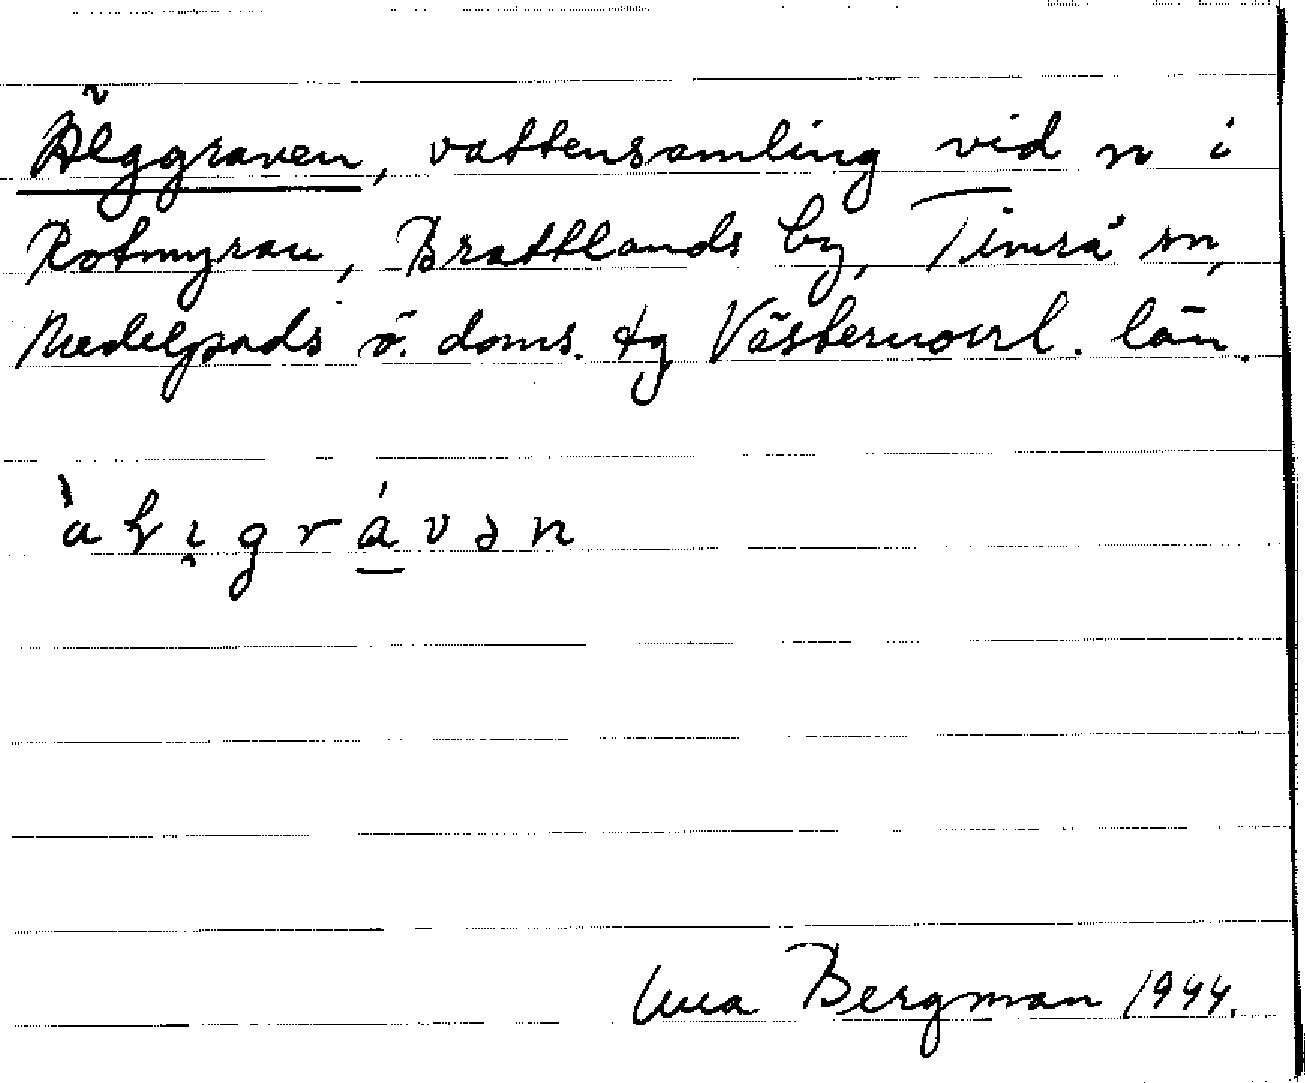 Älggraven, vattensamling vid n i
Rotmyran, Brattlands by, Timrå sn,
Medelpads ö. doms. tg Västernorrl. län.
Bergman 1944.